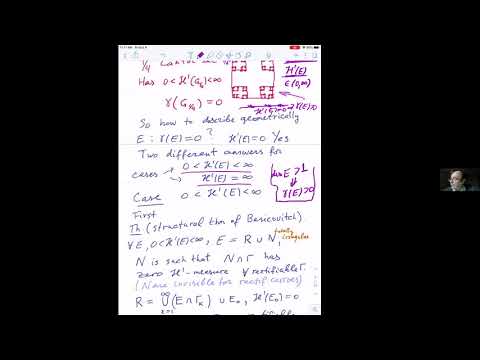 1/4 Cantor
Has 0 < ℋ¹(G¼) < ∞
γ(G¼) = 0
ℋ¹(E)
∈ (0,∞)
So how to describe geometrically
E : γ(E) = 0 ? ℋ¹(E) = 0 Yes
Two different answers for
cases → 0 < ℋ¹(E) < ∞
→ ℋ¹(E) = ∞
dim E > 1
⇓
γ(E) > 0
Case 0 < ℋ¹(E) < ∞
First
Th (structural thm of Besicovitch)
∀ E, 0 < ℋ¹(E) < ∞, E = R ∪ N, totally irregular
N is such that N ∩ Γ has
zero ℋ¹-measure ∀ rectifiable Γ.
(N are invisible for rectif curves)
R = ∪ (E ∩ Γₖ) ∪ E₀, ℋ¹(E₀) = 0